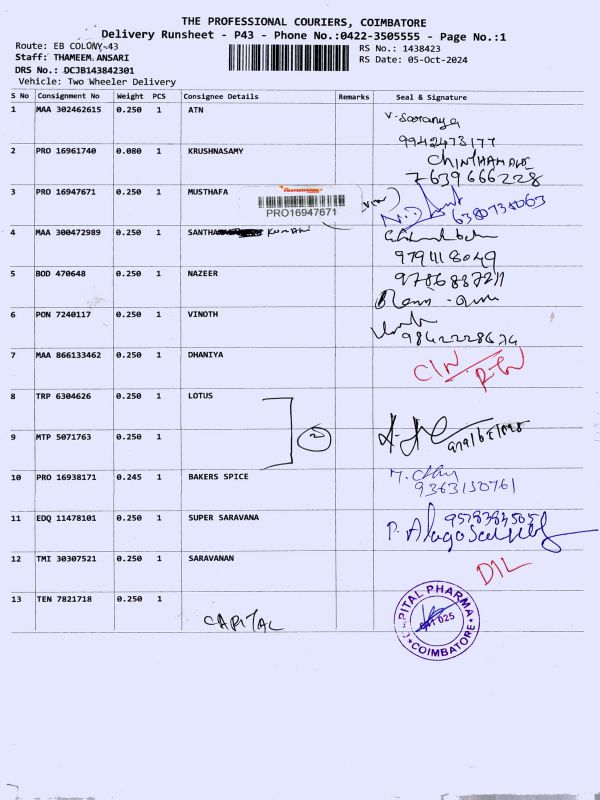 THE PROFESSIONAL COURIERS, COIMBATORE
Delivery Runsheet - P43 - Phone No.:0422-3505555 - Page No.:1
Route: EB COLONY-43
RS No.: 1438423
Staff: THAMEEM ANSARI
RS Date: 05-Oct-2024
DRS No.: DCJB143842301
Vehicle: Two Wheeler Delivery
S No Consignment No Weight PCS Consignee Details Remarks Seal & Signature
1 MAA 302462615 0.250 1 ATN
V. Saranya
9942473177
2 PRO 16961740 0.080 1 KRUSHNASAMY
CHINTHAMANI
7639666228
3 PRO 16947671 0.250 1 MUSTHAFA
PRO16947671
6380738063
4 MAA 300472989 0.250 1 SANTHA KUMARI
9791118049
5 BOD 470648 0.250 1 NAZEER
9786887211
6 PON 7240117 0.250 1 VINOTH
9842228674
7 MAA 866133462 0.250 1 DHANIYA
8 TRP 6304626 0.250 1 LOTUS
2
9 MTP 5071763 0.250 1
10 PRO 16938171 0.245 1 BAKERS SPICE
9363150761
11 EDQ 11478101 0.250 1 SUPER SARAVANA
12 TMI 30307521 0.250 1 SARAVANAN
D/L
13 TEN 7821718 0.250 1
CAPITAL
CAPITAL PHARMA
COIMBATORE